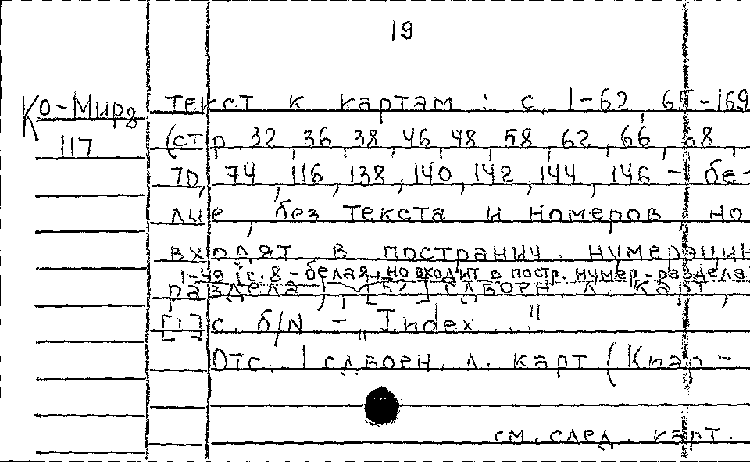 19
Ко-Мира
117
текст к картам: с. 1-62, 65-169
(стр. 32, 36, 38, 46, 48, 58, 62, 66, 68,
70, 74, 116, 138, 140, 142, 144, 146 - бе-
лые, без текста и номеров, но
входят в постранич. нумерации
1-49 (с. 8 - белая, но входит в постр. нумер. раздела
раздела), [52] сдвоен. л. карт,
[1] с. б/N - „Index..."
Отс. 1 сдвоен. л. карт (
см. след. карт.